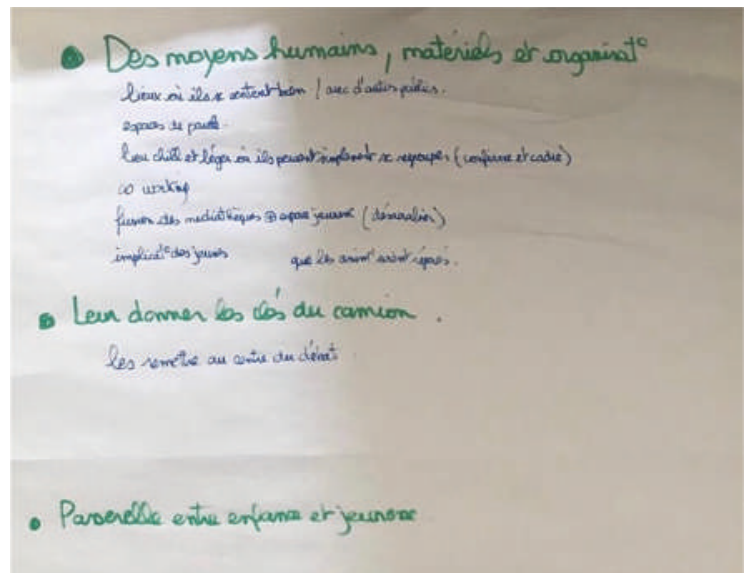 Des moyens humains, matériels et organisat°
lieux où ils se sentent bien / avec d'autres publics.
espaces de parole.
lieu chill et léger où ils peuvent simplement se regrouper (confiance et cadre)
co working
fusion des mediathèques ⊕ espace jeunesse
implicat° des jeunes que les anim° soient
Leur donner les clés du camion.
les remettre au centre du débat
Passerelle entre enfance et jeunesse